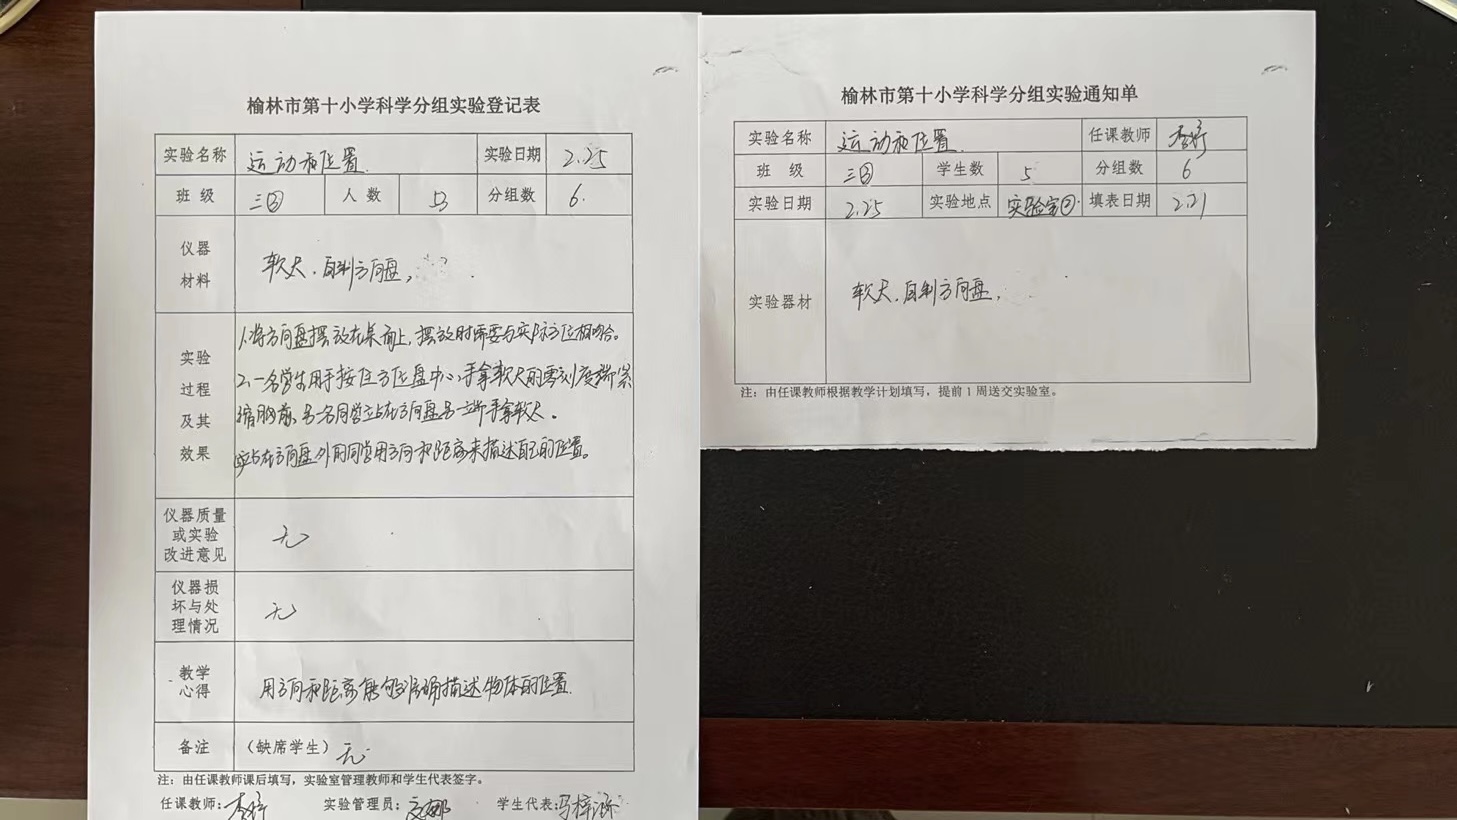 榆林市第十小学科学分组实验登记表
实验名称 运动和位置. 实验日期 2.25
班 级 三③ 人 数 53 分组数 6.
仪器
材料
软尺.自制方向盘,
实验
过程
及其
效果
1.将方向盘摆放在桌面上,摆放时需要与实际方位相吻合。
2.一名学生用手按住方位盘中心,手拿软尺的零刻度端紧
缩胸前,另一名同学站在方向盘另一端手拿软尺。
站在方向盘外的同学用方向和距离来描述自己的位置。
仪器质量
或实验
改进意见
无
仪器损
坏与处
理情况
无
教学
心得
用方向和距离能够准确描述物体的位置.
备注 (缺席学生) 无
注:由任课教师课后填写,实验室管理教师和学生代表签字。
任课教师: 实验管理员: 学生代表:马梓涵
榆林市第十小学科学分组实验通知单
实验名称 运动和位置. 任课教师
班 级 三③ 学生数 5 分组数 6
实验日期 2.25 实验地点 实验室②. 填表日期 2.21
实验器材 软尺.自制方向盘,
注:由任课教师根据教学计划填写,提前1周送交实验室。